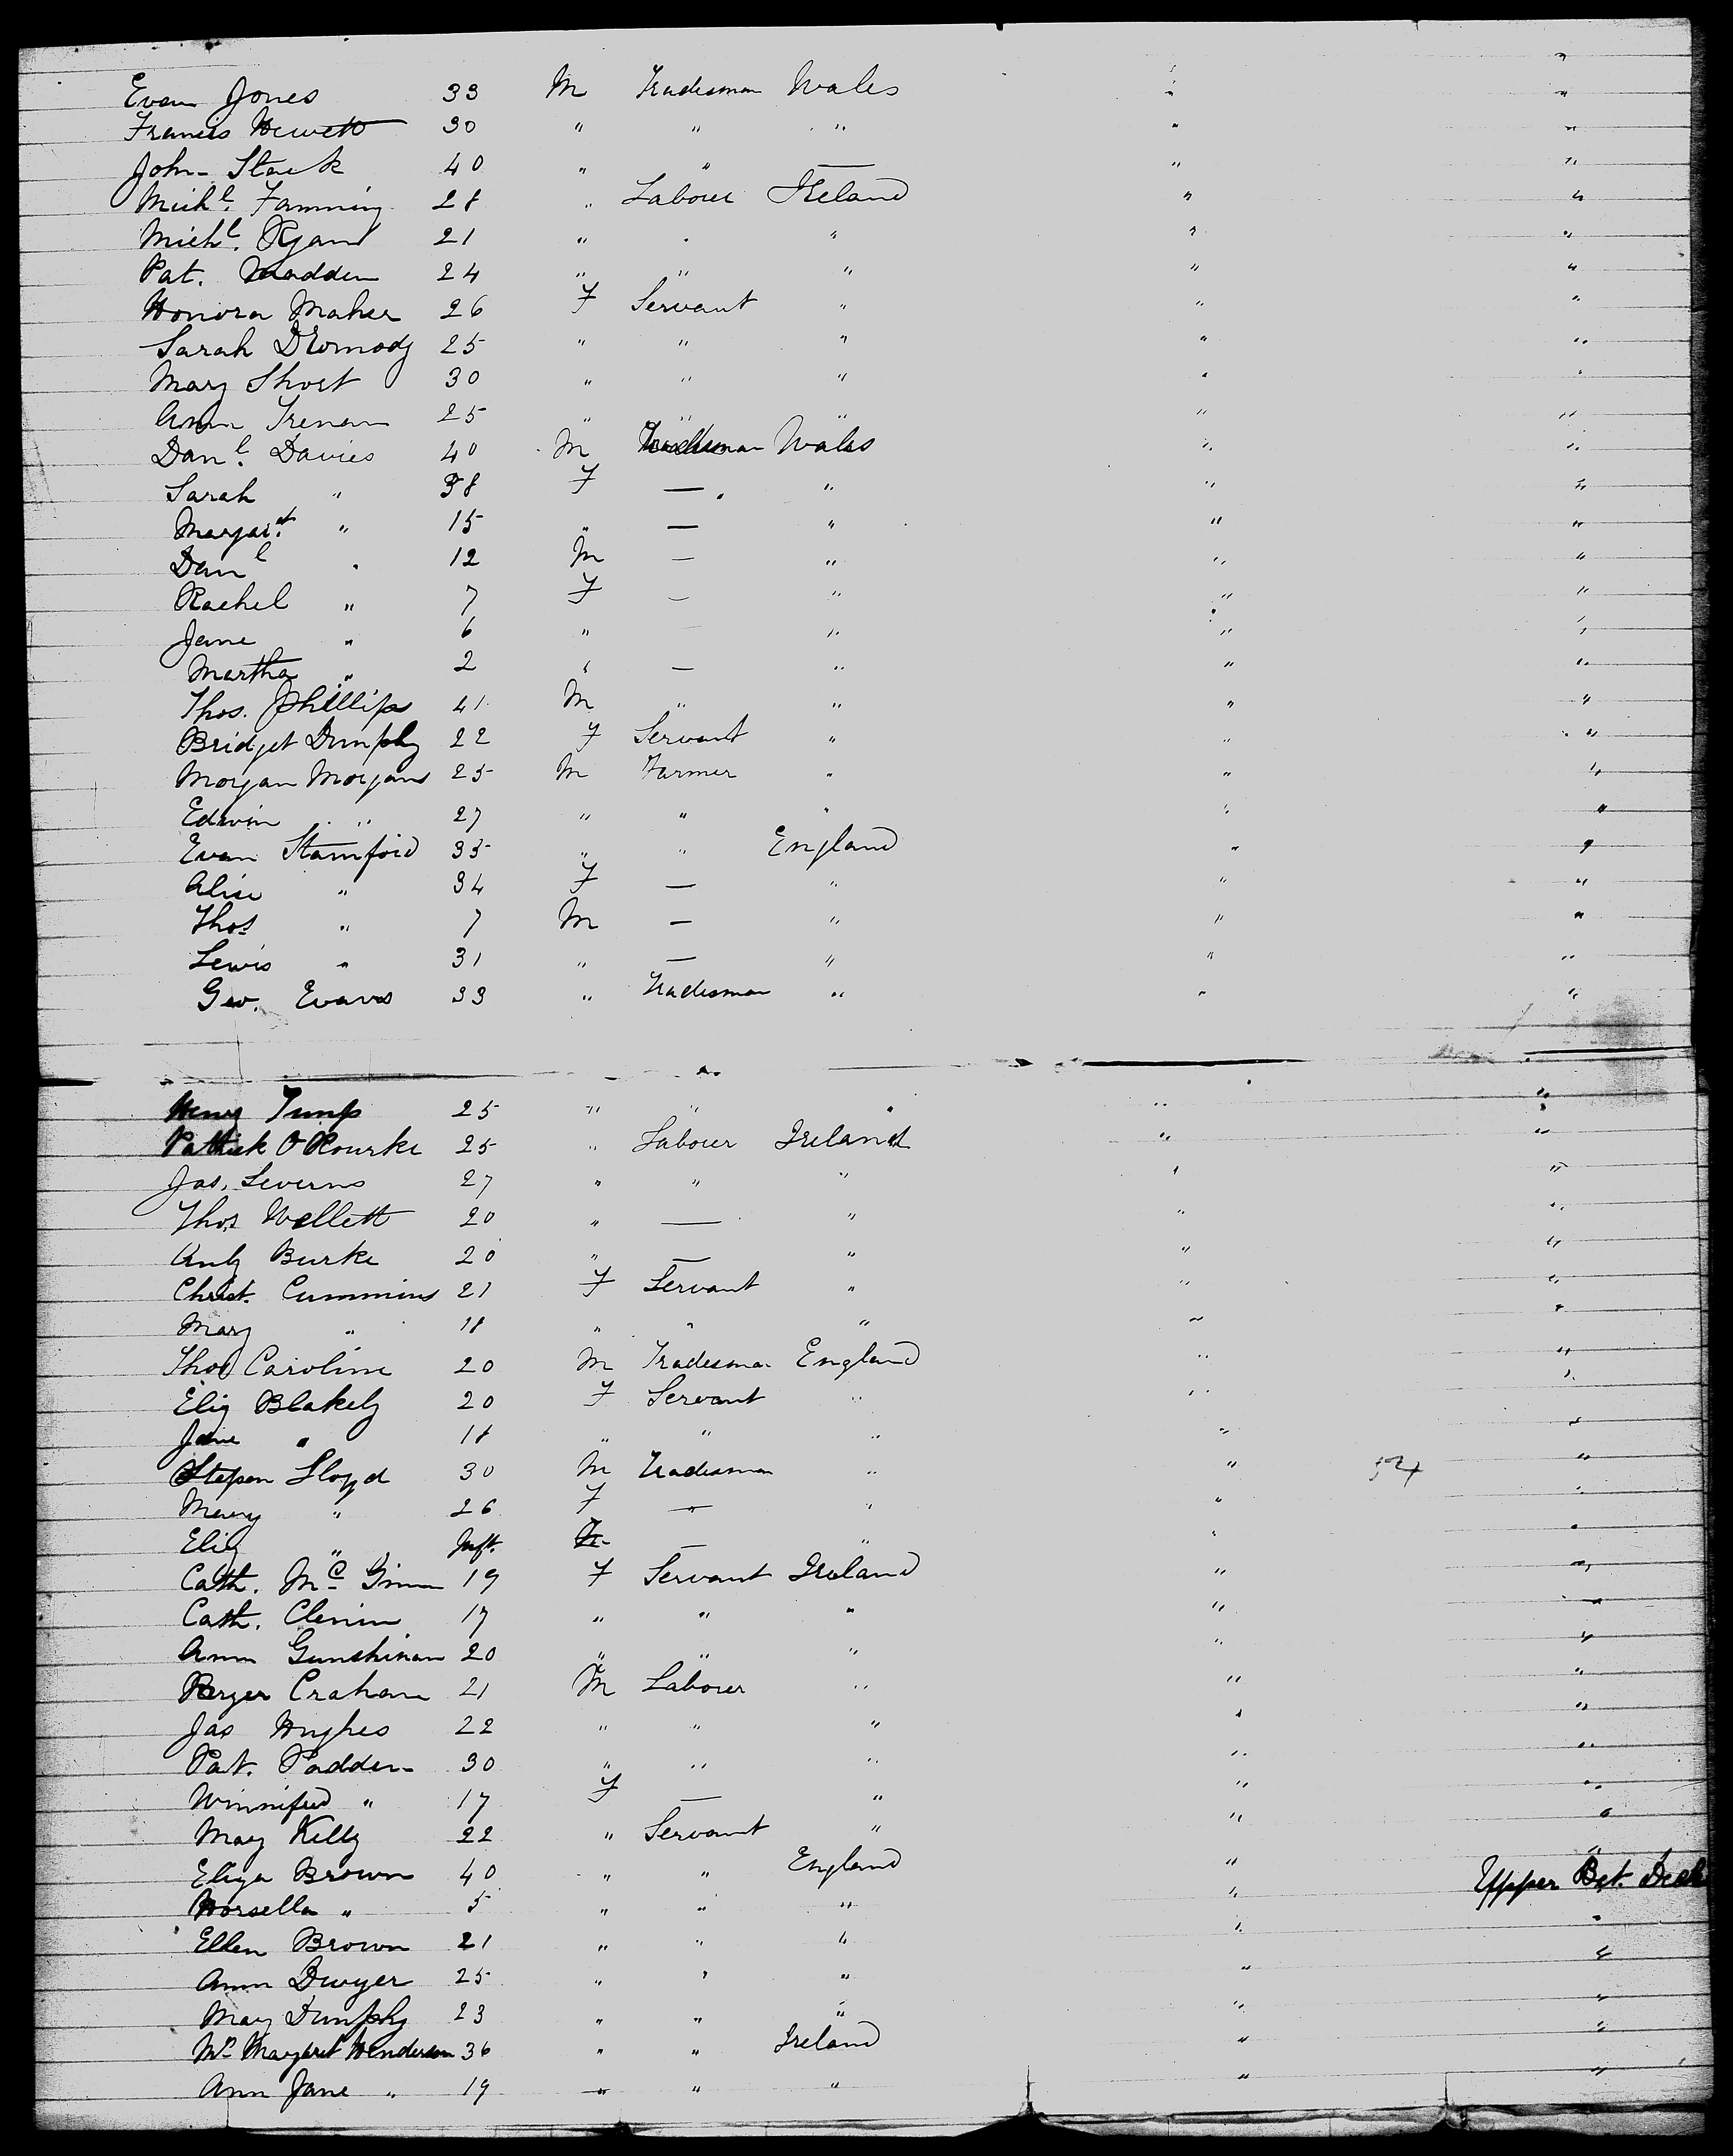 Evan Jones 33 M Tradesman Wales " "
Francis Hewett 30 " " " " "
John Stack 40 " " — " "
Michl. Fanning 28 " Labour Ireland " "
Michl. Ryan 21 " " " " "
Pat. Madden 24 " " " " "
Honora Maher 26 F Servant " " "
Sarah Dermody 25 " " " " "
Mary Short 30 " " " " "
Ann 25 " " " " "
Danl. Davies 40 M Tradesman Wales " "
Sarah " 38 F — " " "
Margart. " 15 " — " " "
Danl " 12 M — " " "
Rachel " 7 F — " " "
Jane " 6 " — " " "
Martha " 2 " — " " "
Thos. Phillips 41 M " " " "
Bridget Dunphy 22 F Servant " " "
Morgan Morgans 25 M Farmer " " "
Edwin " 27 " " " " "
Evan Stamford 35 " " England " "
Alice " 34 F — " " "
Thos " 7 M — " " "
Lewis " 31 " — " " "
Geo. Evans 33 " Tradesman " " "
Henry Tump 25 " " " " "
Patrick O Rourke 25 " Labour Ireland " "
Jas. Severns 27 " " " " "
Thos Wellett 20 " — " " "
Anty Burke 20 " — " " "
Christ. Cummins 21 F Servant " " "
Mary " 18 " " " " "
Thos Caroline 20 M Tradesman England " "
Eliz Blakely 20 F Servant " " "
Jane " 18 " " " " "
Stepen Lloyd 30 M Tradesman " " "
Mary " 26 F " " " "
Eliz " Inft. — " " "
Cath. Mc Ginn 19 F Servant Ireland " "
Cath. Clenin 17 " " " " "
Ann Gunshinan 20 " " " " "
Roger Craham 21 M Labour " " "
Jas Hughes 22 " " " " "
Pat. Padden 30 " " " " "
Winnifred " 17 F — " " "
Mary Kelly 22 " Servant " " "
Eliza Brown 40 " " England " Upper Bet. Deck
Horsella " 5 " " " " "
Ellen Brown 21 " " " " "
Ann Dwyer 25 " " " " "
Mary Dunphy 23 " " " " "
Mrs Margaret Henderson 36 " " Ireland " "
Ann Jane " 19 " " " " "